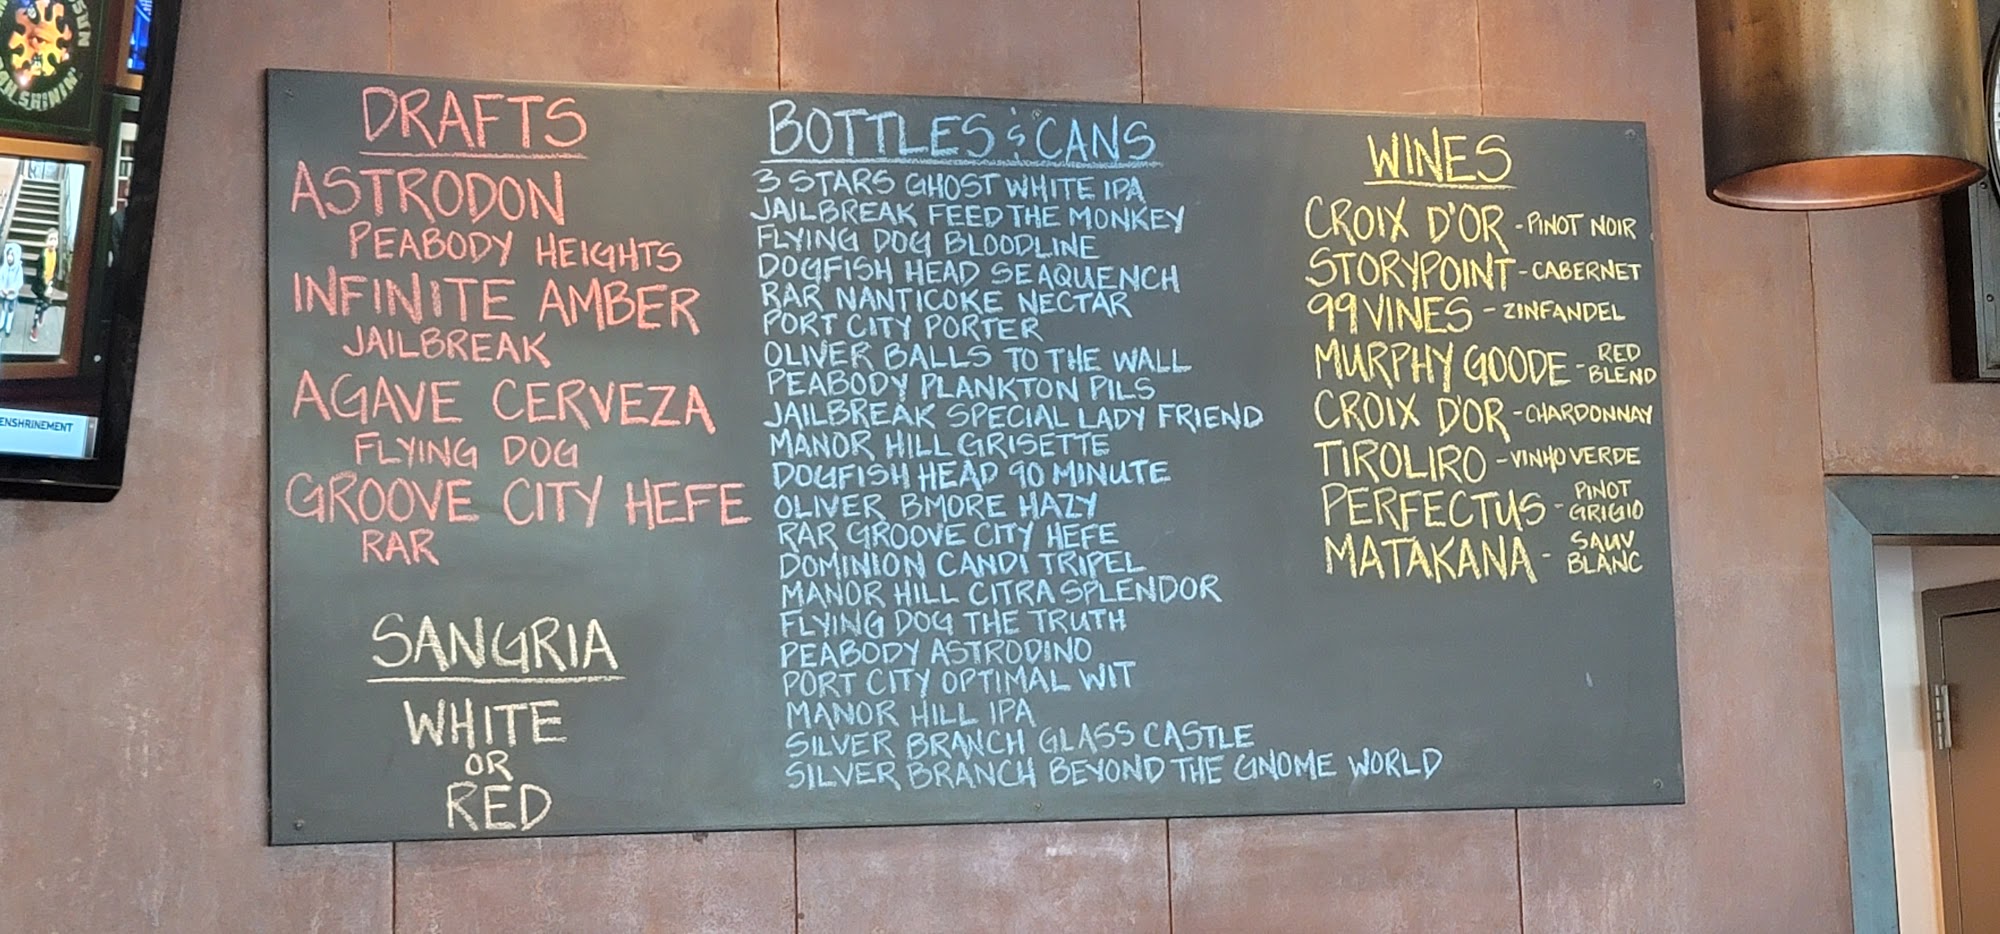 DRAFTS
ASTRODON
PEABODY HEIGHTS
INFINITE AMBER
JAILBREAK
AGAVE CERVEZA
FLYING DOG
GROOVE CITY HEFE
RAR
SANGRIA
WHITE
OR
RED
BOTTLES & CANS
3 STARS GHOST WHITE IPA
JAILBREAK FEED THE MONKEY
FLYING DOG BLOODLINE
DOGFISH HEAD SEAQUENCH
RAR NANTICOKE NECTAR
PORT CITY PORTER
OLIVER BALLS TO THE WALL
PEABODY PLANKTON PILS
JAILBREAK SPECIAL LADY FRIEND
MANOR HILL GRISETTE
DOGFISH HEAD 90 MINUTE
OLIVER BMORE HAZY
RAR GROOVE CITY HEFE
DOMINION CANDI TRIPEL
MANOR HILL CITRA SPLENDOR
FLYING DOG THE TRUTH
PEABODY ASTRODINO
PORT CITY OPTIMAL WIT
MANOR HILL IPA
SILVER BRANCH GLASS CASTLE
SILVER BRANCH BEYOND THE GNOME WORLD
WINES
CROIX D'OR - PINOT NOIR
STORYPOINT - CABERNET
99 VINES - ZINFANDEL
MURPHY GOODE - RED BLEND
CROIX D'OR - CHARDONNAY
TIROLIRO - VINHO VERDE
PERFECTUS - PINOT GRIGIO
MATAKANA - SAUV BLANC
ENSHRINEMENT